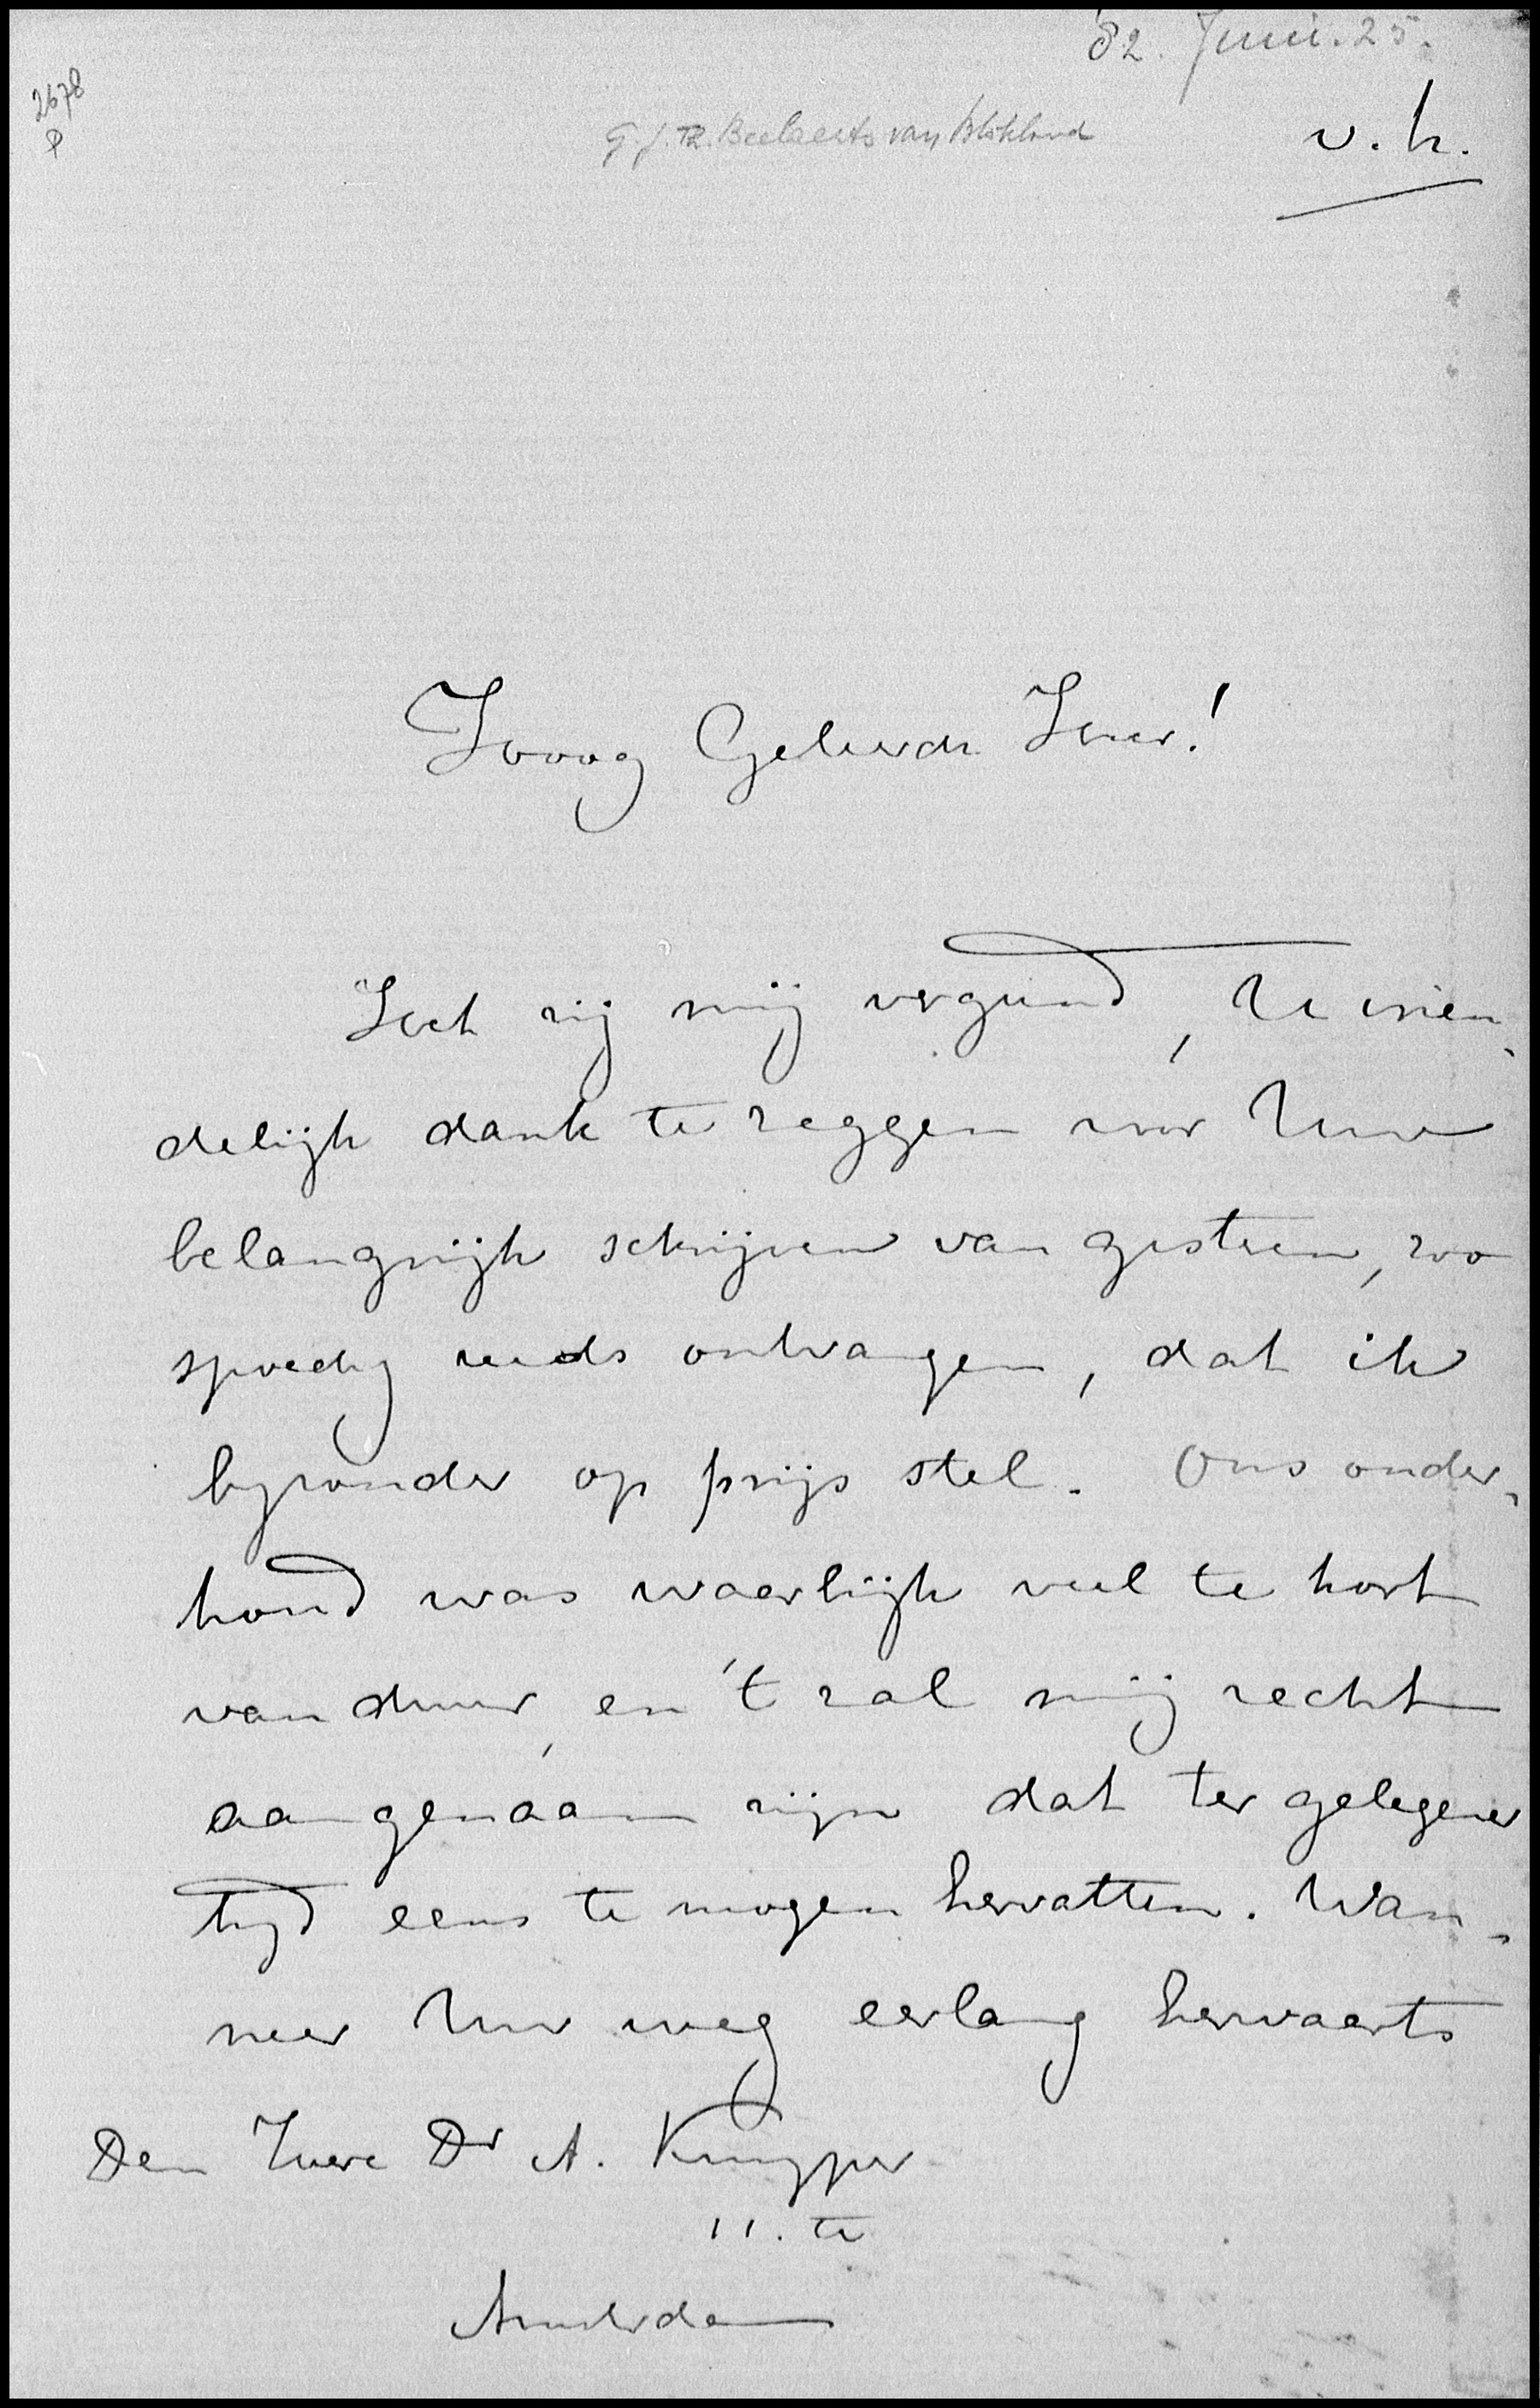 '82. Juni. 25.
2678
P
G. J. Th. Beelaerts van Blokland
v. h.
Hoog Geleerde Heer!
Het zij mij vergund, U vrien-
delijk dank te zeggen voor Uw
belangrijk schrijven van gisteren, zoo
spoedig reeds ontvangen, dat ik
byzonder op prijs stel. Ons onder-
houd was waarlijk veel te kort
van duur, en 't zal mij recht
aangenaam zijn dat ter gelegener
tijd eens te mogen hervatten. Wan-
neer Uw weg eerlang herwaarts
Den Heere Dr A. Kuyper
te
Amsterdam